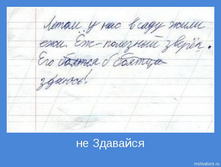 Летом у нас в саду жили
ежи. Ёж-полезный зверёк.
Его боятся
не Здавайся
motivators.ru